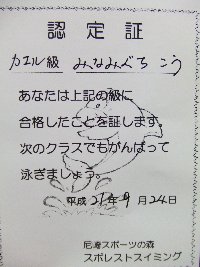 認定証
カエル級 みなみぐち こう
あなたは上記の級に
合格したことを証します。
次のクラスでもがんばって
泳ぎましょう。
平成 21年 9月 24日
尼崎スポーツの森
スポレストスイミング